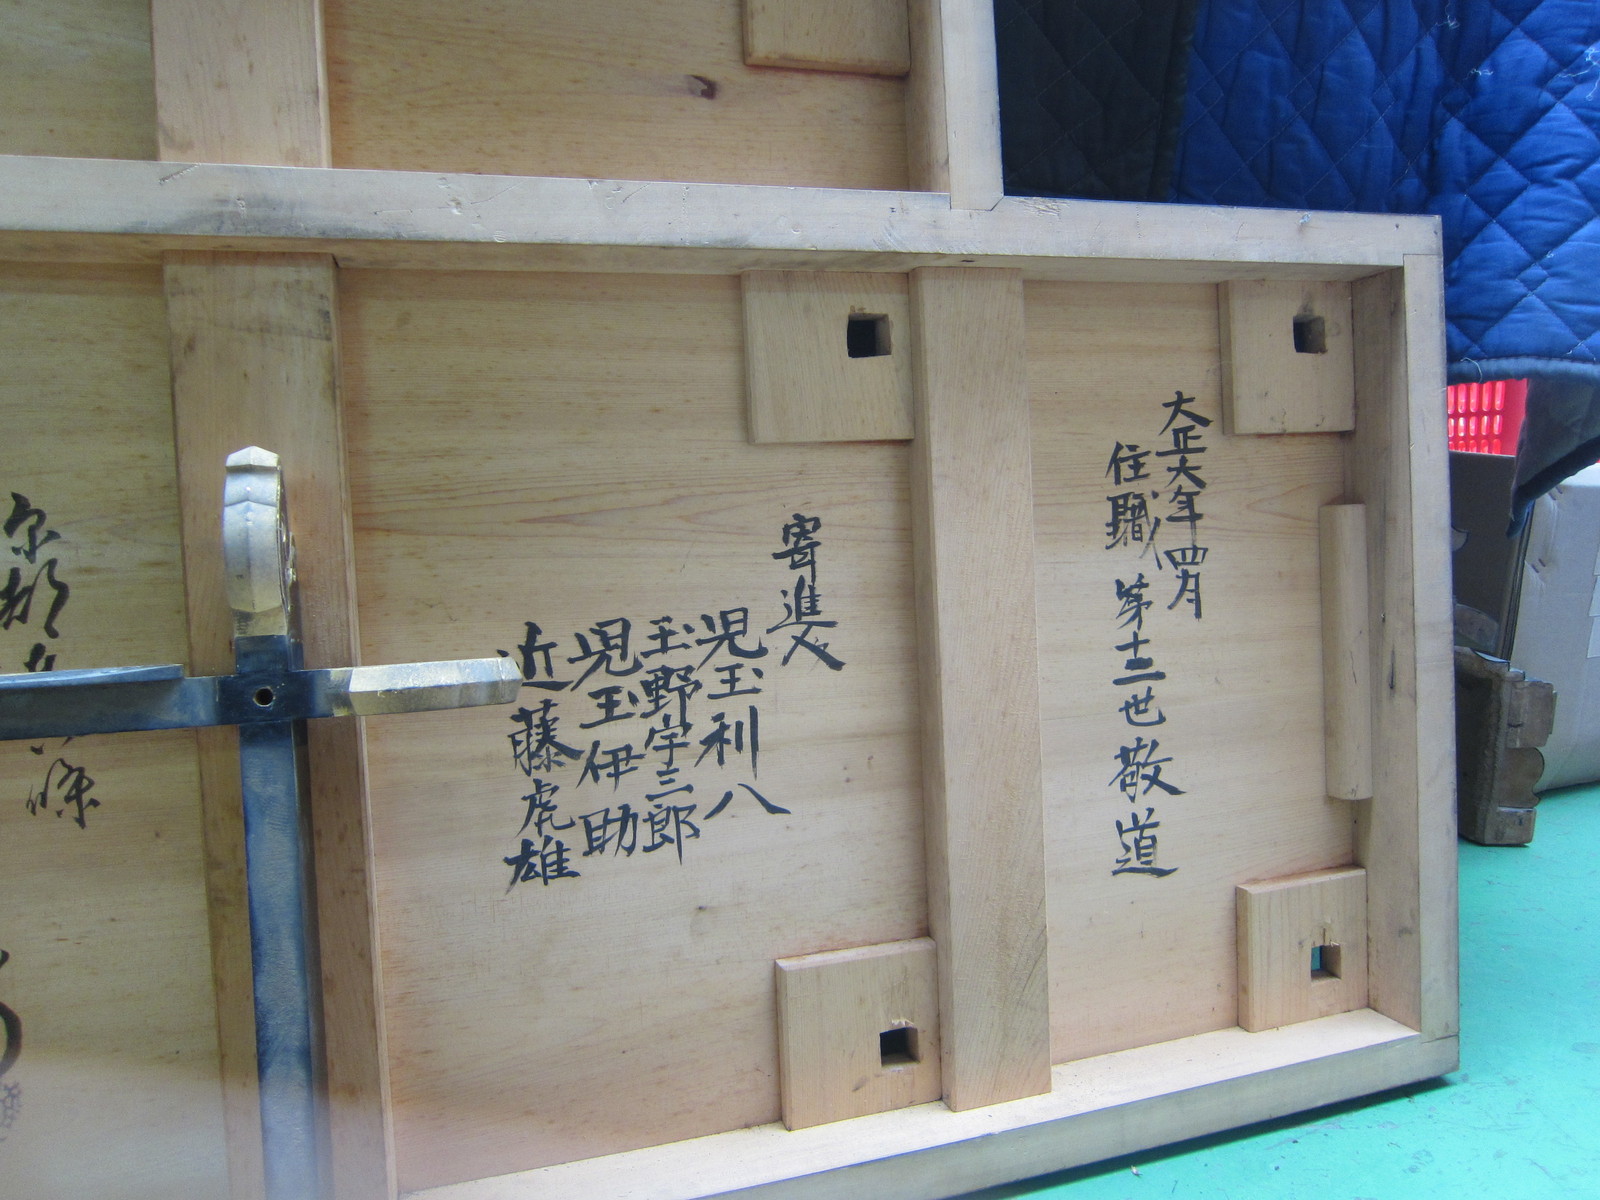 大正六年四月
住職 第十三世 敬道
寄進人
児玉利八
玉野宇三郎
児玉伊助
近藤虎雄
京都